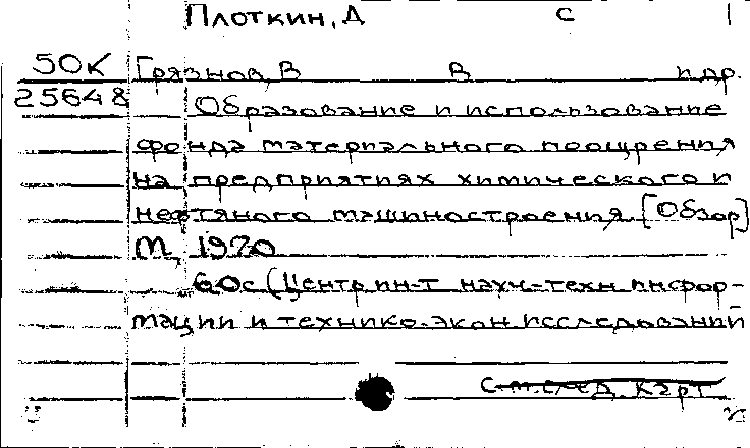 Плоткин, Д С
50К Грязнов, В В и др.
25648 Образование и использование
фонда материального поощрения
на предприятиях химического и
нефтяного машиностроения [Обзор]
М, 1970
60с (Центр ин-т науч-техн инфор-
мации и технико-экон исследований
см. след. карт